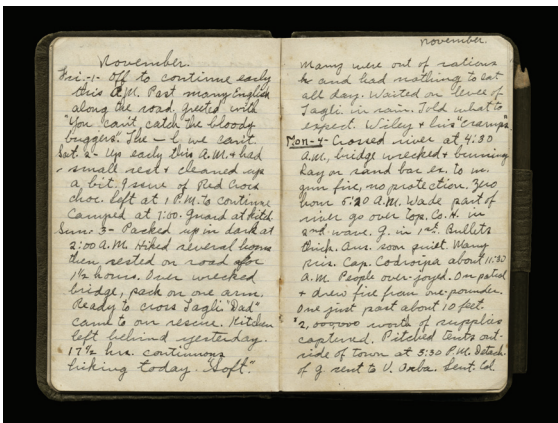 November.
Fri.-1- Off to continue early
this A.M. Past many English
along the road, greeted with
"You can't catch the bloody
buggers". The — l, we can't.
Sat. 2- Up early this A.M. & had
small rest & cleaned up
a bit. Issue of Red Cross
choc. left at 1 P.M. to continue
Camped at 7:00. Guard at kitch
Sun. 3- Packed up in dark at
2:00 A.M. Hiked several hours
then rested on road for
1½ hours. Over wrecked
bridge, pack on one arm.
Ready to cross Tagli. "Dad"
came to our rescue. Kitchen
left behind yesterday.
17½ hrs. continuous
hiking today. "Soft".
November.
Many were out of rations
& had nothing to eat
all day. Waited on levee of
Tagli. in rain. Told what to
expect. Wiley & his "cramps"
Mon-4- Crossed river at 4:30
A.M., bridge wrecked & burning
Lay on sand bar ex. to m.
gun fire, no protection. Zero
hour 5:20 A.M. Wade part of
river go over top, Co. H. in
2nd wave. G. in 1st. Bullets
thick. Aus. soon quiet. Many
pris. Cap. Codroipa about 11:30
A.M. People over-joyed. On patrol
& drew fire from one-pounder.
One just past about 10 feet.
$2,000,000 worth of supplies
captured. Pitched tents out-
side of town at 3:30 P.M. Detach.
of G sent to V. Orba. Lieut. Col.